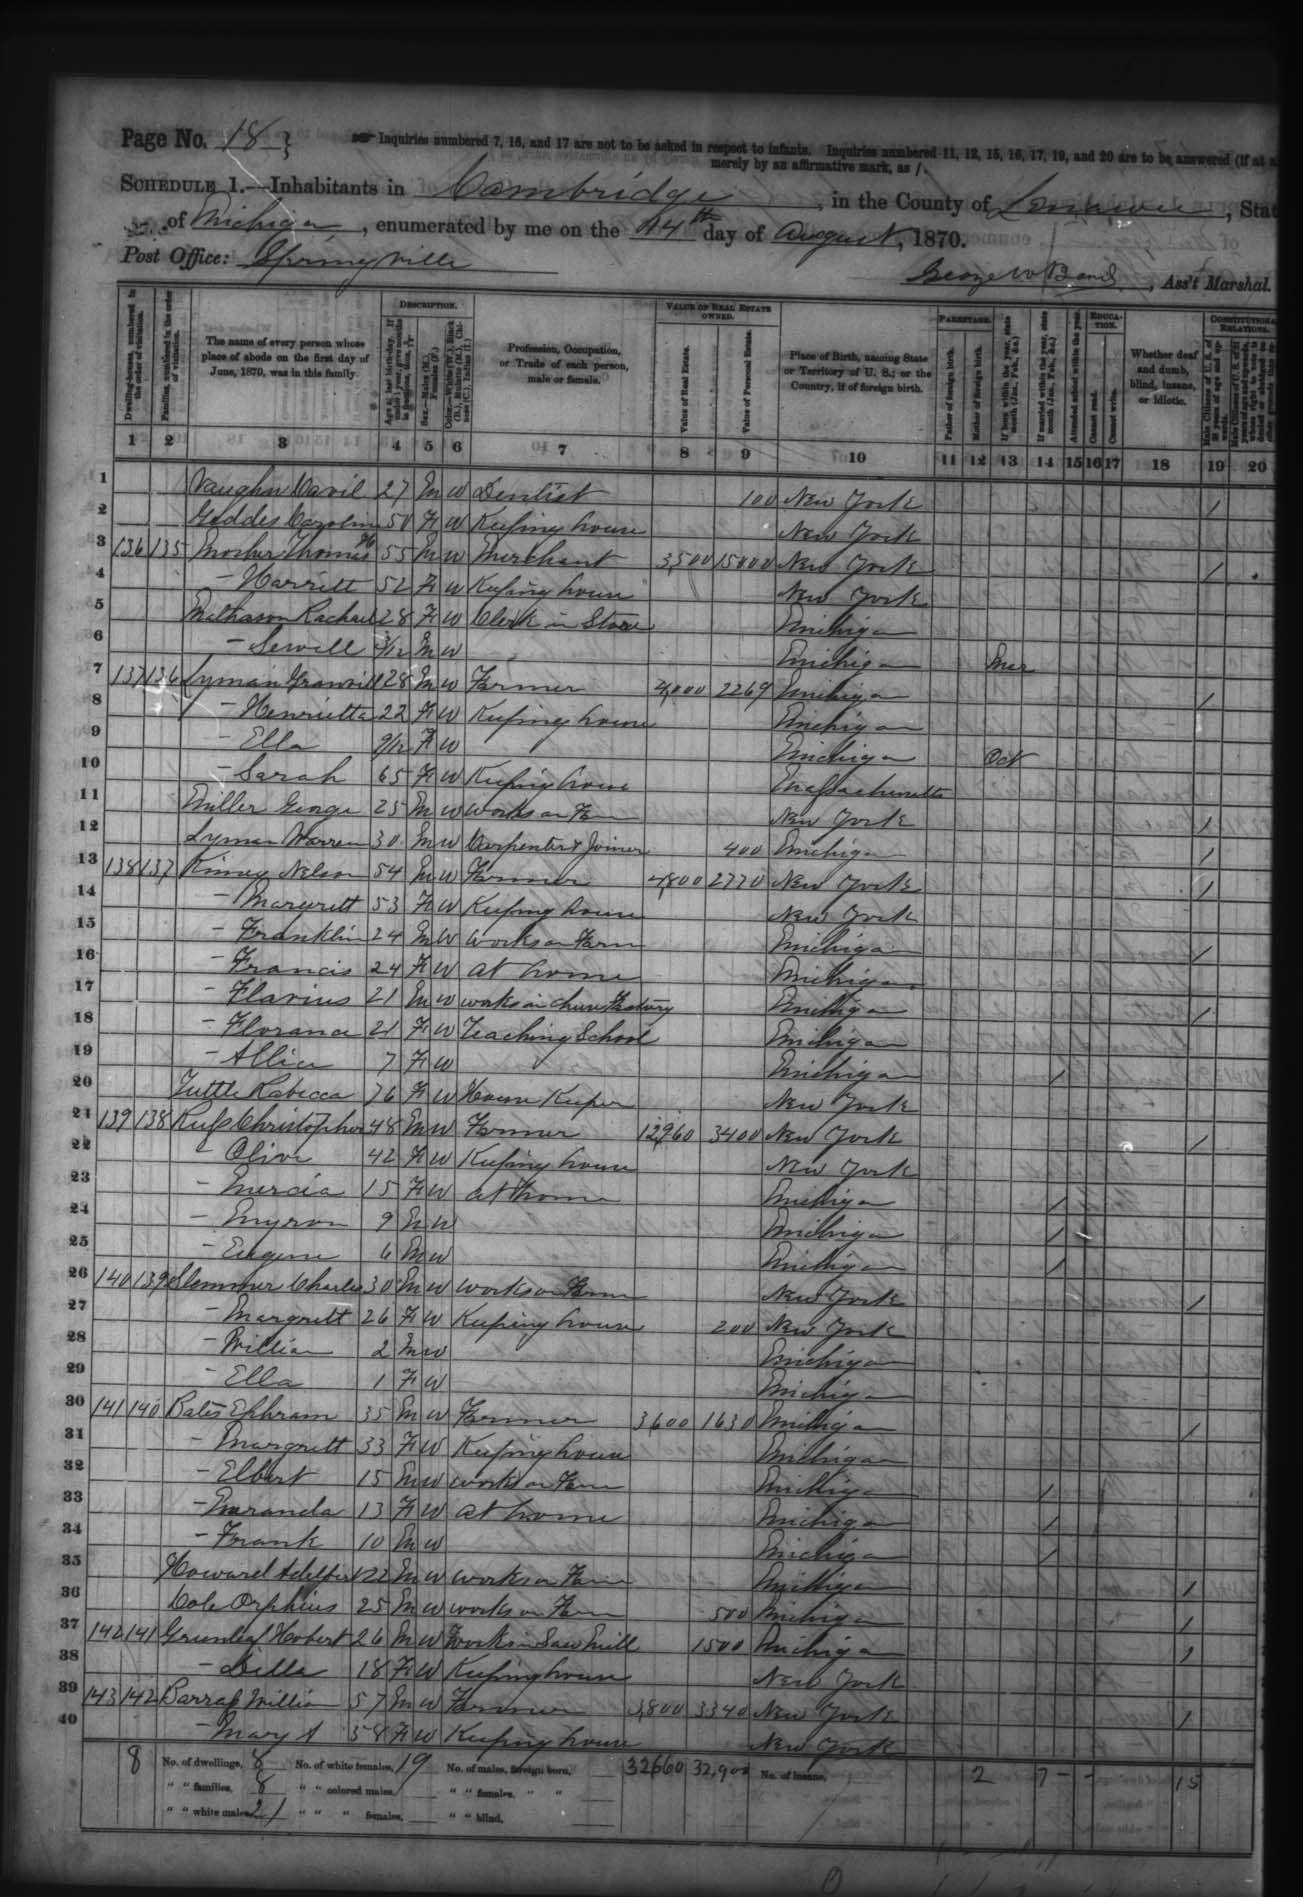 Page No. 18
Inquiries numbered 7, 16, and 17 are not to be asked in respect to infants. Inquiries numbered 11, 12, 15, 16, 17, 19, and 20 are to be answered (if at a
merely by an affirmative mark, as /.
SCHEDULE 1.—Inhabitants in Cambridge, in the County of Lenawee, Stat
of Michigan, enumerated by me on the 14th day of August, 1870.
Post Office: Springville
George W Band, Ass't Marshal.
Dwelling-houses, numbered in the order of visitation.
Families, numbered in the order of visitation.
The name of every person whose place of abode on the first day of June, 1870, was in this family.
DESCRIPTION.
Sex.—Males (M.), Females (F.)
Profession, Occupation, or Trade of each person, male or female.
VALUE OF REAL ESTATE OWNED.
Value of Real Estate.
Value of Personal Estate.
Place of Birth, naming State or Territory of U. S.; or the Country, if of foreign birth.
PARENTAGE.
Father of foreign birth.
Mother of foreign birth.
If born within the year, state month (Jan., Feb., &c.)
If married within the year, state month (Jan., Feb., &c.)
Attended school within the year.
EDUCATION.
Cannot read.
Cannot write.
Whether deaf and dumb, blind, insane, or idiotic.
CONSTITUTIONAL RELATIONS.
1 2 3 4 5 6 7 8 9 10 11 12 13 14 15 16 17 18 19 20
1 Vaughn 27 M W Dentist 100 New York /
2 Geddes Caroline 50 F W Keeping house New York
3 136 135 Mosher Thomas 55 M W Merchant 3,500 15000 New York /
4 — Harriett 52 F W Keeping house New York
5 Mathason Rachael 28 F W Clerk in Store Michigan
6 — Sewell 3/12 M W Michigan Mar
7 137 136 Lyman Granvill 28 M W Farmer 4,000 2269 Michigan /
8 — Henrietta 22 F W Keeping house Michigan
9 — Ella 9/12 F W Michigan Oct
10 — Sarah 65 F W Keeping house Massachusetts
11 Miller George 25 M W works on Farm New York /
12 Lyman Warren 30 M W Carpenter & Joiner 400 Michigan /
13 138 137 Kinney Nelson 54 M W Farmer 4,800 2770 New York /
14 — Margrett 53 F W Keeping house New York
15 — Franklin 24 M W works on Farm Michigan /
16 — Francis 24 F W at home Michigan
17 — Flavius 21 M W works in cheese Factory Michigan /
18 — Florance 21 F W Teaching School Michigan
19 — Allice 7 F W Michigan /
20 Tuttle Rabecca 76 F W House Keeper New York
21 139 138 Christopher 48 M W Farmer 12,960 3400 New York /
22 — Olive 42 F W Keeping house New York
23 — Mercia 15 F W at home Michigan /
24 — Myron 9 M W Michigan /
25 — Eugene 6 M W Michigan /
26 140 139 Slemmer Charles 30 M W works on Farm New York /
27 — Margrett 26 F W Keeping house 200 New York
28 — William 2 M W Michigan
29 — Ella 1 F W Michigan
30 141 140 Bates Ephram 35 M W Farmer 3,600 1630 Michigan /
31 — Margrett 33 F W Keeping house Michigan
32 — Elbert 15 M W works on Farm Michigan /
33 — Maranda 13 F W at home Michigan /
34 — Frank 10 M W Michigan /
35 Howard 22 M W works on Farm Michigan /
36 Cole Orphius 25 M W works on Farm 500 Michigan /
37 142 141 Greenleaf Hobert 26 M W Works in Saw Mill 1500 Michigan /
38 — Della 18 F W Keeping house New York
39 143 142 William 57 M W Farmer 3,800 3340 New York /
40 — Mary A 58 F W Keeping house New York
8 No. of dwellings, 8 No. of white females, 19 No. of males, foreign born, 32660 32,900 No. of insane, 2 7 - - 15
" " families, 8 " " colored males, " " females, " "
" " white males, 21 " " " females, " " blind,